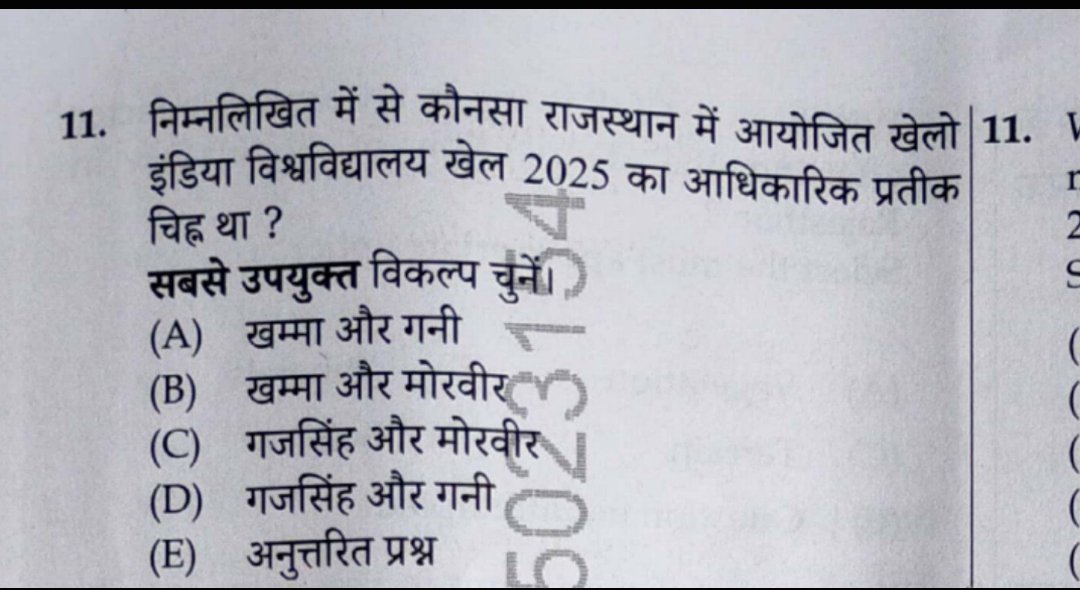 11. निम्नलिखित में से कौनसा राजस्थान में आयोजित खेलो
इंडिया विश्वविद्यालय खेल 2025 का आधिकारिक प्रतीक
चिह्न था ?
सबसे उपयुक्त विकल्प चुनें।
(A) खम्मा और गनी
(B) खम्मा और मोरवीर
(C) गजसिंह और मोरवीर
(D) गजसिंह और गनी
(E) अनुत्तरित प्रश्न
11.
5023154